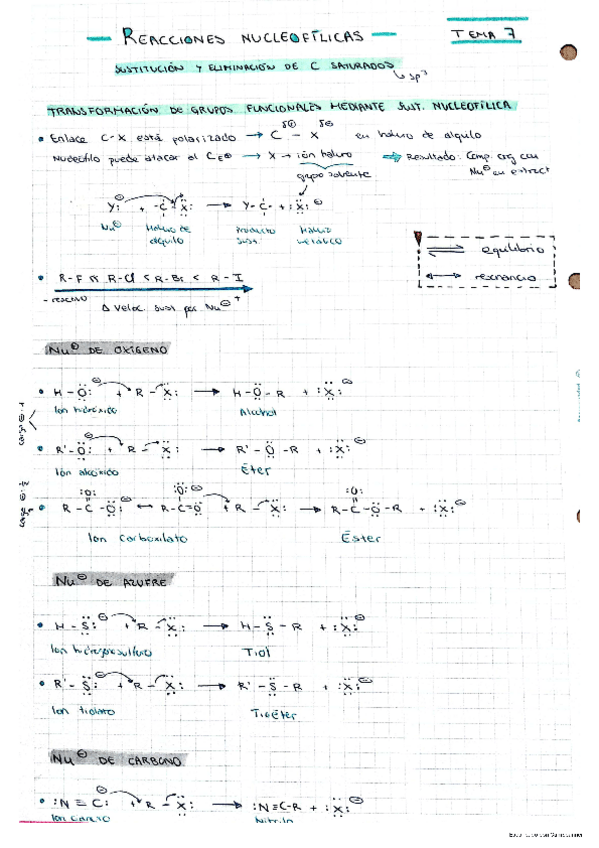 REACCIONES NUCLEOFÍLICAS TEMA 7
SUSTITUCIÓN Y ELIMINACIÓN DE C SATURADOS
sp³
TRANSFORMACIÓN DE GRUPOS FUNCIONALES MEDIANTE SUST. NUCLEOFÍLICA
• Enlace C-X está polarizado → C – X en haluro de alquilo
δ⊕ δ⊖
Nucleófilo puede atacar al C → X → ión haluro ⇒ Resultado: Comp. org con
grupo saliente Nu⊖ en estruct
Y:⊖ + -C-X: → Y-C- + :X:⊖
Nu⊖ Haluro de alquilo Producto sust. Haluro
equilibrio
resonancia
• R-F << R-Cl < R-Br < R-I
- +
Δ Veloc. sust por Nu⊖
Nu⊖ DE OXÍGENO
• H-O:⊖ + R-X: → H-O-R + :X:⊖
Ion hidróxido Alcohol
• R'-O:⊖ + R-X: → R'-O-R + :X:⊖
Ión alcóxido Éter
carga ⊖ -1
:O: :O:⊖ :O:
• R-C-O:⊖ ↔ R-C=O + R-X: → R-C-O-R + :X:⊖
Ion Carboxilato Éster
Nu⊖ DE AZUFRE
• H-S:⊖ + R-X: → H-S-R + :X:⊖
Ion hidrogenosulfuro Tiol
• R'-S:⊖ + R-X: → R'-S-R + :X:⊖
Ion tiolato Tioéter
Nu⊖ DE CARBONO
• :N≡C:⊖ + R-X: → :N≡C-R + :X:⊖
Ion cianuro Nitrilo